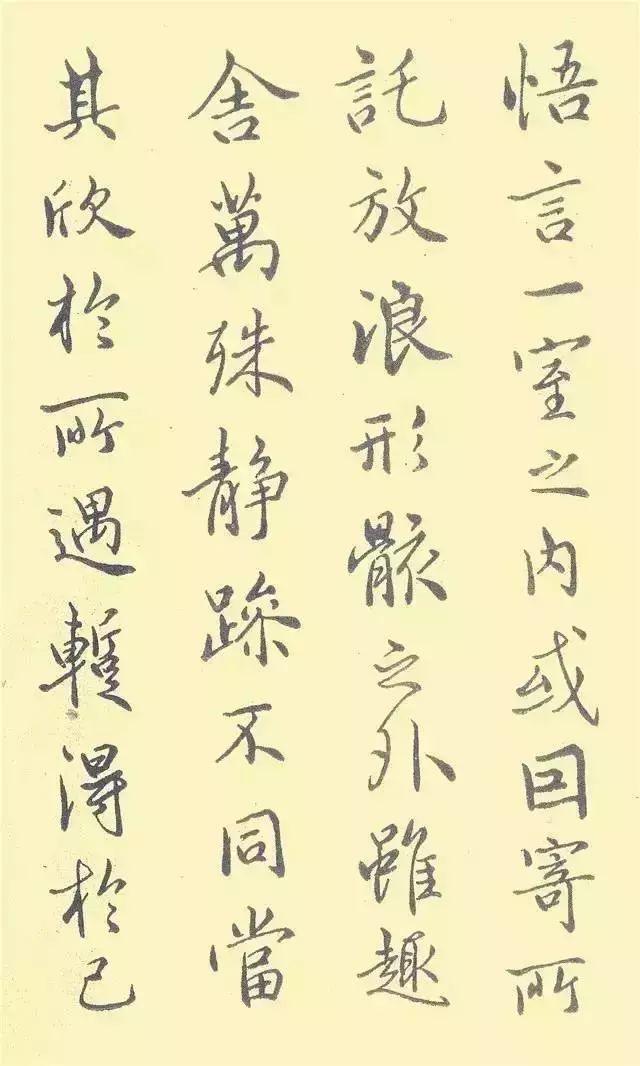 悟言一室之内或因寄所
託放浪形骸之外雖趣
舍萬殊靜躁不同當
其欣於所遇蹔得於己